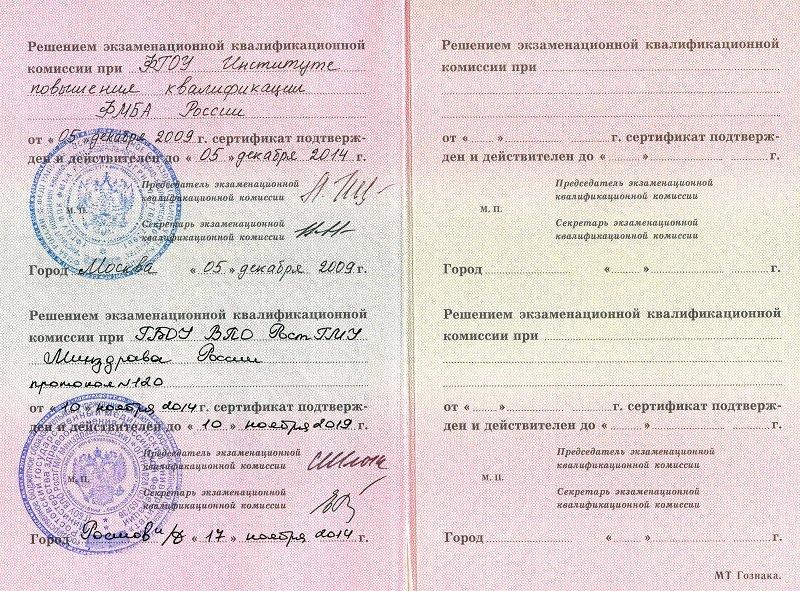 Решением экзаменационной квалификационной
комиссии при ФГОУ Институте
повышения квалификации
ФМБА России
от «05» декабря 2009 г. сертификат подтверж-
ден и действителен до «05» декабря 2014 г.
Председатель экзаменационной
квалификационной комиссии
М. П.
Секретарь экзаменационной
квалификационной комиссии
Город Москва «05» декабря 2009 г.
Решением экзаменационной квалификационной
комиссии при ГБОУ ВПО РостГМУ
Минздрава России
протокол №120
от «10» ноября 2014 г. сертификат подтверж-
ден и действителен до «10» ноября 2019 г.
Председатель экзаменационной
квалификационной комиссии
М. П.
Секретарь экзаменационной
квалификационной комиссии
Город Ростов н/д «17» ноября 2014 г.
Решением экзаменационной квалификационной
комиссии при
от « » г. сертификат подтверж-
ден и действителен до « » г.
Председатель экзаменационной
квалификационной комиссии
М. П.
Секретарь экзаменационной
квалификационной комиссии
Город « » г.
Решением экзаменационной квалификационной
комиссии при
от « » г. сертификат подтверж-
ден и действителен до « » г.
Председатель экзаменационной
квалификационной комиссии
М. П.
Секретарь экзаменационной
квалификационной комиссии
Город « » г.
МТ Гознака.